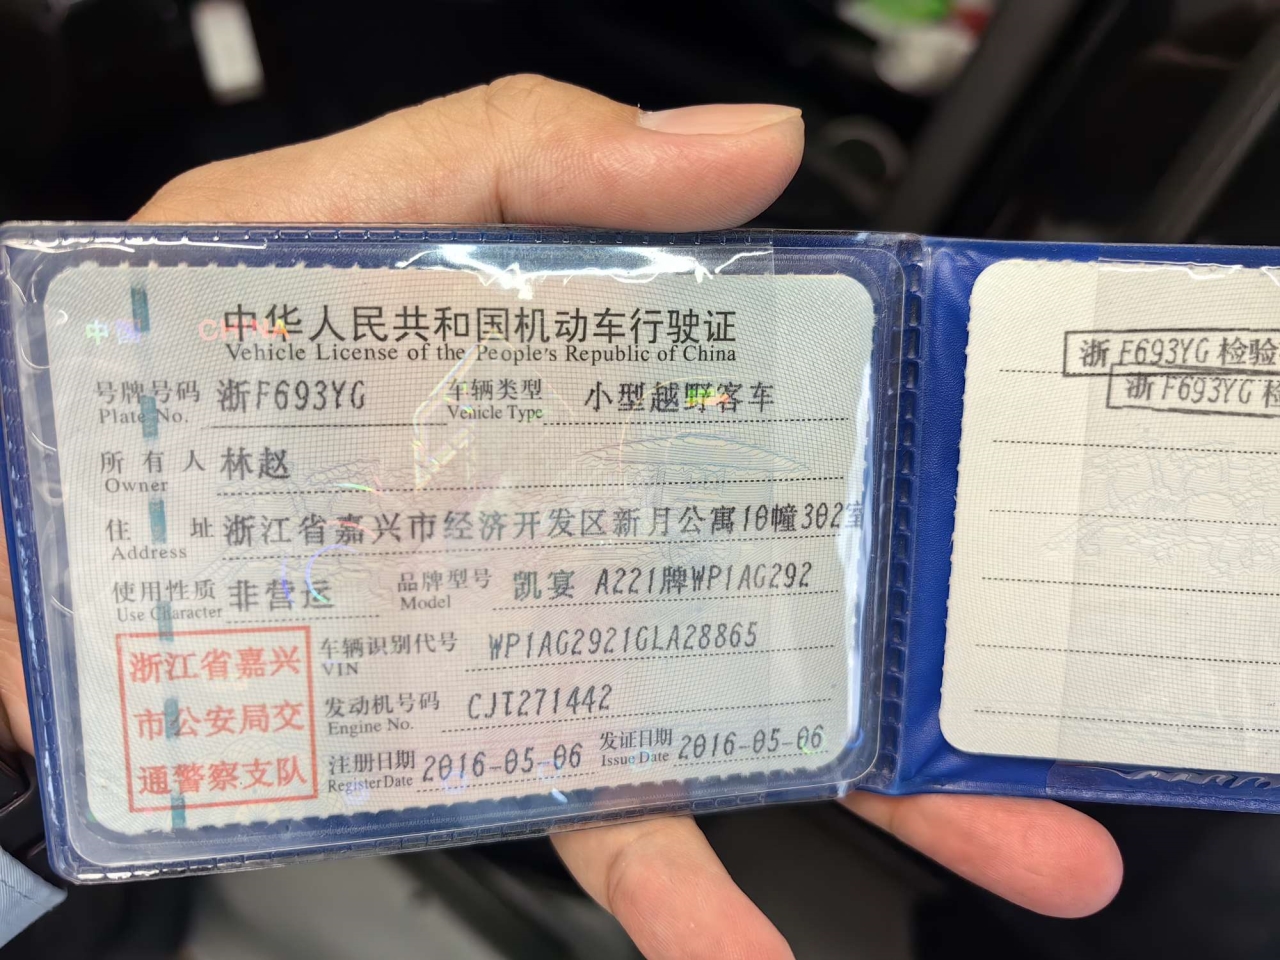 中国 CHINA
中华人民共和国机动车行驶证
Vehicle License of the People's Republic of China
号牌号码 浙F693YG 车辆类型 小型越野客车
Plate No. Vehicle Type
所有人 林赵
Owner
住址 浙江省嘉兴市经济开发区新月公寓10幢302室
Address
使用性质 非营运 品牌型号 凯宴 A221牌WP1AG292
Use Character Model
浙江省嘉兴
市公安局交
通警察支队
车辆识别代号 WP1AG2921GLA28865
VIN
发动机号码 CJT271442
Engine No.
注册日期 2016-05-06 发证日期 2016-05-06
Register Date Issue Date
浙F693YG 检验
浙F693YG 检